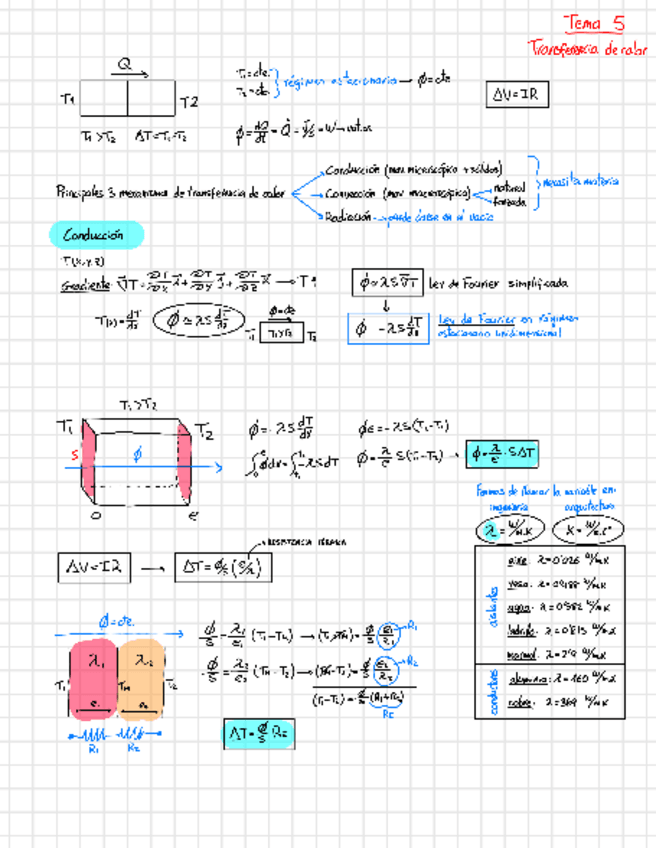 Tema 5
Transferencia de calor
Q
T1 T2
T1 = cte.
T2 = cte.
régimen estacionario → ϕ = cte
ΔV = IR
T1 > T2 ΔT = T1 - T2
Principales 3 mecanismos de transferencia de calor
Conducción (mov microscópico → sólidos)
Convección (mov macroscópico)
natural
forzada
necesita materia
Radiación → puede darse en el vacío
Conducción
T(x,y,z)
Gradiente: ∇T = ∂T/∂x i + ∂T/∂y j + ∂T/∂z k → T↑
ϕ ≃ λS∇T Ley de Fourier simplificada
ϕ ≃ λS dT/dx
ϕ = cte
T1 T1>T2 T2
ϕ = -λS dT/dx
Ley de Fourier en régimen
estacionario unidimensional
T1 > T2
T1 T2
S ϕ
0 e
ϕ = -λS dT/dx
ϕe = -λS(T2 - T1)
ϕ = λ/e S(T1 - T2) → ϕ = λ/e · SΔT
Formas de llamar la variable en:
ingeniería arquitectura
λ = W/m·K K = W/m·C°
ΔV = IR → ΔT = ϕ/S (e/λ)
RESISTENCIA TÉRMICA
aislantes
aire: λ = 0'026 W/m·K
yeso: λ = 0'488 W/m·K
agua: λ = 0'582 W/m·K
ladrillo: λ = 0'813 W/m·K
marmol: λ = 2'9 W/m·K
conductores
aluminio: λ = 160 W/m·K
cobre: λ = 369 W/m·K
ϕ = cte.
T1 λ1 TM λ2 T2
e1 e2
R1 R2
ϕ/S = λ1/e1 (T1 - TM) → (T1 - TM) = ϕ/S (e1/λ1) → R1
ϕ/S = λ2/e2 (TM - T2) → (TM - T2) = ϕ/S (e2/λ2) → R2
(T1 - T2) = ϕ/S (R1 + R2)
RE
ΔT = ϕ/S RE